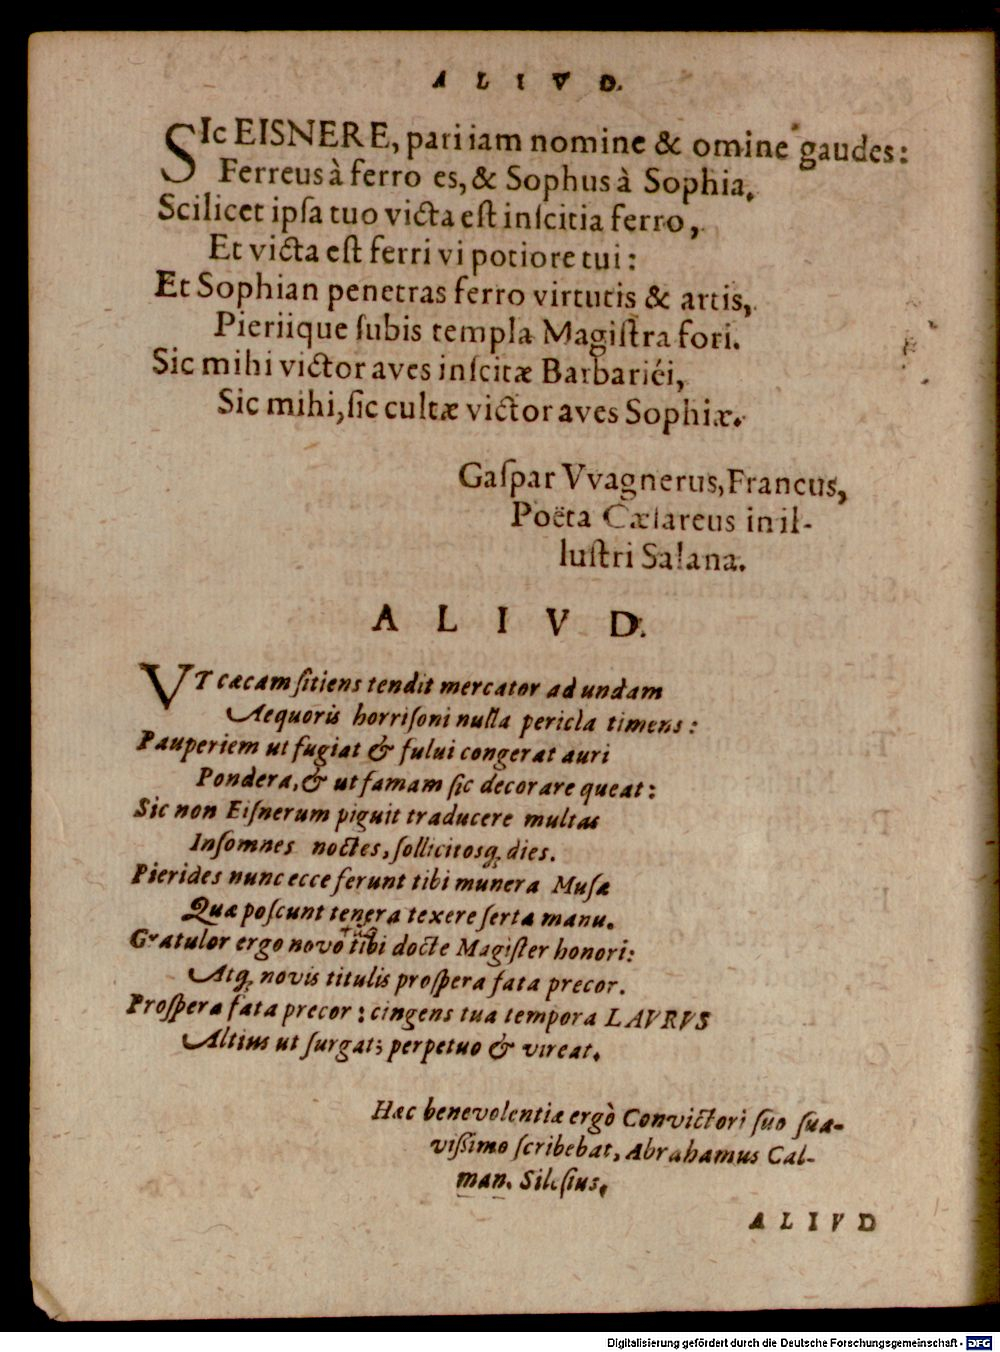 ALIVD.
SIc EISNERE, pari iam nomine & omine gaudes:
Ferreus à ferro es, & Sophus à Sophia.
Scilicet ipſa tuo victa eſt inſcitia ferro,
Et victa eſt ferri vi potiore tui:
Et Sophian penetras ferro virtutis & artis,
Pieriique ſubis templa Magiſtra fori.
Sic mihi victor aves inſcitæ Barbariéi,
Sic mihi, ſic cultæ victor aves Sophiæ.
Gaſpar VVagnerus, Francus,
Poëta Cæſareus in il-
luſtri Salana.
ALIVD.
VT cæcam ſitiens tendit mercator ad undam
Aequoris horriſoni nulla pericla timens:
Pauperiem ut fugiat & fului congerat auri
Pondera, & ut famam ſic decorare queat:
Sic non Eiſnerum piguit traducere multas
Inſomnes noctes, ſollicitosq; dies.
Pierides nunc ecce ferunt tibi munera Muſæ
Quæ poſcunt tenera texere ſerta manu.
Gratulor ergo novo tibi docte Magiſter honori:
Atq; novis titulis proſpera fata precor.
Proſpera fata precor: cingens tua tempora LAVRVS
Altius ut ſurgat; perpetuo & vireat.
Hæc benevolentiæ ergò Convictori ſuo ſua-
viſſimo ſcribebat, Abrahamus Cal-
man. Sileſius,
ALIVD
Digitalisierung gefördert durch die Deutsche Forschungsgemeinschaft - DFG